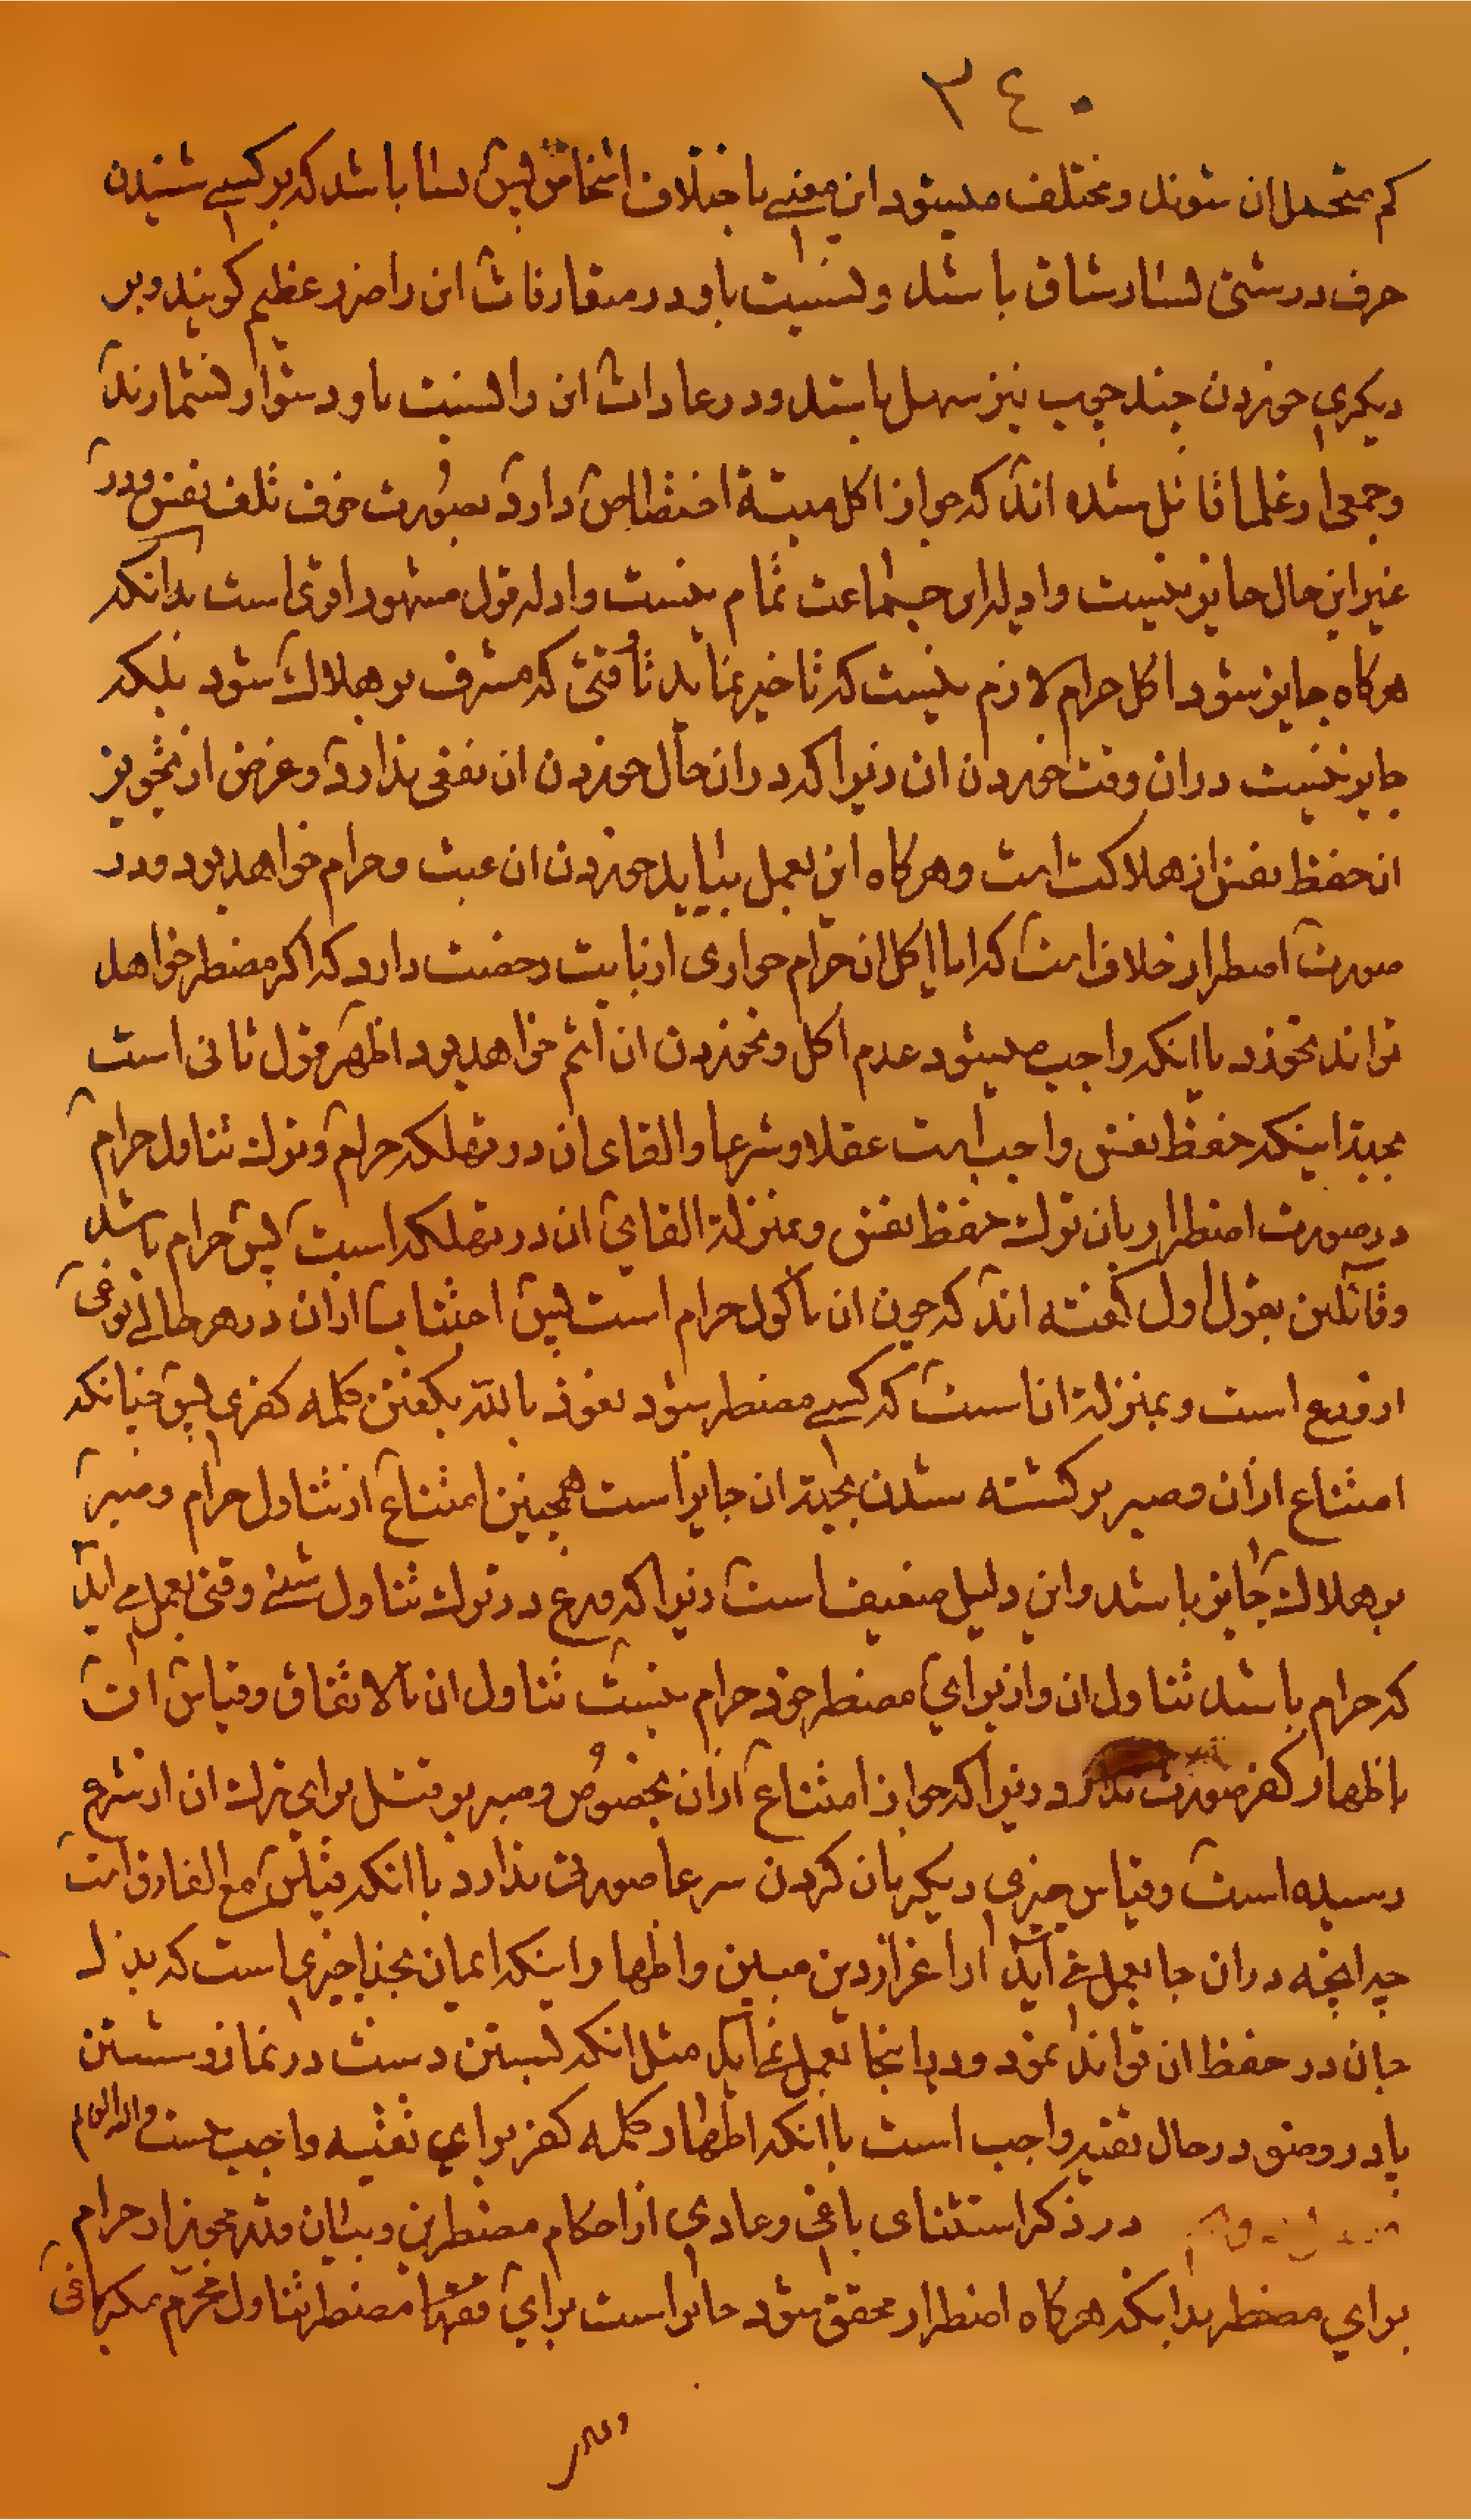 ٣٤٠
کم متحمل ان شوند و مختلف میشود این معنی باختلاف اشخاص پس بسا باشد که بر کسی شنیدن
حرف درشتی بسیار شاق باشد و نسبت باو در متعارفات این را ضرر عظیم کویند و بر
دیکری خوردن چند چوب نیز سهل باشد و در عادات این را نسبت باو دشوار نشمارند
و جمعی از علما قائل شده اند که جواز اکل میتة اختصاص دارد بصورت خوف تلف نفس و در
غیر این حال جایز نیست و ادله این جماعت تمام نیست و ادله قول مشهور اقوی است بدانکه
هرکاه جایز شود اکل حرام لازم نیست که تاخیر نماید تا وقتی که مشرف بر هلاك شود بلکه
جایز نیست در ان وقت خوردن ان زیرا که در ان حال خوردن ان نفعی ندارد و غرض از تجویز
ان حفظ نفس از هلاکت است و هرکاه این بعمل نیاید خوردن ان عبث و حرام خواهد بود و در
صورت اضطرار خلاف است که ایا اکل ان حرام جوازی از بابت رخصت دارد که اکر مضطر خواهد
تواند نخورد یا انکه واجب میشود عدم اکل و نخوردن ان اثم خواهد بود اظهر قول ثانی است
بجهة اینکه حفظ نفس واجب است عقلا و شرعا و القای ان در تهلکه حرام و ترك تناول حرام
در صورت اضطرار بان ترك حفظ نفس و بمنزلة القای ان در تهلکه است پس حرام باشد
و قائلین بقول اول کفته اند که چون ان ماکول حرام است پس اجتناب از ان در هر حالی نوعی
از ورع است و بمنزلة انست که کسی مضطر شود نعوذ بالله بکفتن کلمه کفری پس چنانکه
امتناع از ان و صبر بر کشته شدن بجهة ان جایز است همچنین امتناع از تناول حرام و صبر
بر هلاك جایز باشد و این دلیل ضعیف است زیرا که ورع در ترك تناول شئی وقتی بعمل می اید
که حرام باشد تناول ان و از برای مضطر خود حرام نیست تناول ان بالاتفاق و قیاس ان
باظهار کفر صورت ندارد زیرا که جواز امتناع از ان بخصوص و صبر بر قتل برای ترك ان از شرع
رسیده است و قیاس چیزی دیکر بان کردن شرعا صورت ندارد با انکه قیاس مع الفارق است
چه انچه در ان جا بعمل می آید از اعزاز دین مبین و اظهار اینکه ایمان بخدا چیزی است که بذل
جان در حفظ ان تواند نمود و در اینجا بعمل نمی آید مثل انکه بستن دست در نماز و شستن
پا در وضو در حال تقیه واجب است با انکه اظهار کلمه کفر برای تقیه واجب نیست و الله العالم
در ذکر استثنای باغی و عادی از احکام مضطرین و بیان قدر مجوز از حرام
برای مضطر بدانکه هرکاه اضطرار محقق شود جایز است برای مضطر تناول محرم بمکر باغی